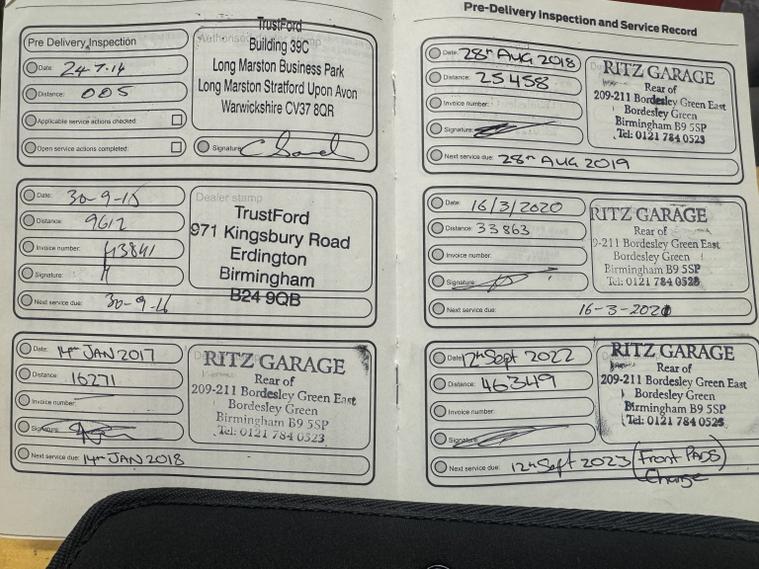 Pre-Delivery Inspection and Service Record
Pre Delivery Inspection
Date: 24-7-14
Distance: 005
Applicable service actions checked:
Open service actions completed:
TrustFord
Building 39C
Long Marston Business Park
Long Marston Stratford Upon Avon
Warwickshire CV37 8QR
Signature:
Date: 30-9-15
Distance: 9612
Invoice number:
Signature:
Next service due: 30-9-16
Dealer stamp
TrustFord
971 Kingsbury Road
Erdington
Birmingham
B24 9QB
Date: 14th JAN 2017
Distance: 16271
Invoice number:
Signature:
Next service due: 14th JAN 2018
RITZ GARAGE
Rear of
209-211 Bordesley Green East
Bordesley Green
Birmingham B9 5SP
Tel: 0121 784 0523
Date: 28th AUG 2018
Distance: 25458
Invoice number:
Signature:
Next service due: 28th AUG 2019
RITZ GARAGE
Rear of
209-211 Bordesley Green East
Bordesley Green
Birmingham B9 5SP
Tel: 0121 784 0523
Date: 16/3/2020
Distance: 33863
Invoice number:
Signature:
Next service due: 16-3-2021
RITZ GARAGE
Rear of
9-211 Bordesley Green East
Bordesley Green
Birmingham B9 5SP
Tel: 0121 784 0523
Date: 12th Sept 2022
Distance: 46349
Invoice number:
Signature:
Next service due: 12th Sept 2023 (Front PADS
Change
RITZ GARAGE
Rear of
209-211 Bordesley Green East
Bordesley Green
Birmingham B9 5SP
Tel: 0121 784 0523